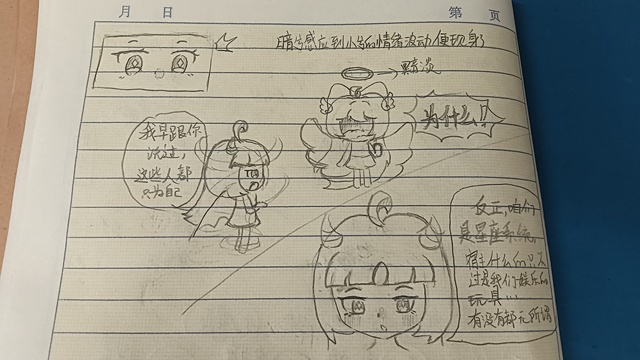 月 日
第 页
暗生感应到小生的情绪波动,便现身了
黯淡
为什么!
我早跟你
说过,
这些人都
只为自己
反正,咱们
是星座系统,
宿主什么的只不
过是我们娱乐的
玩具…
有没有都无所谓